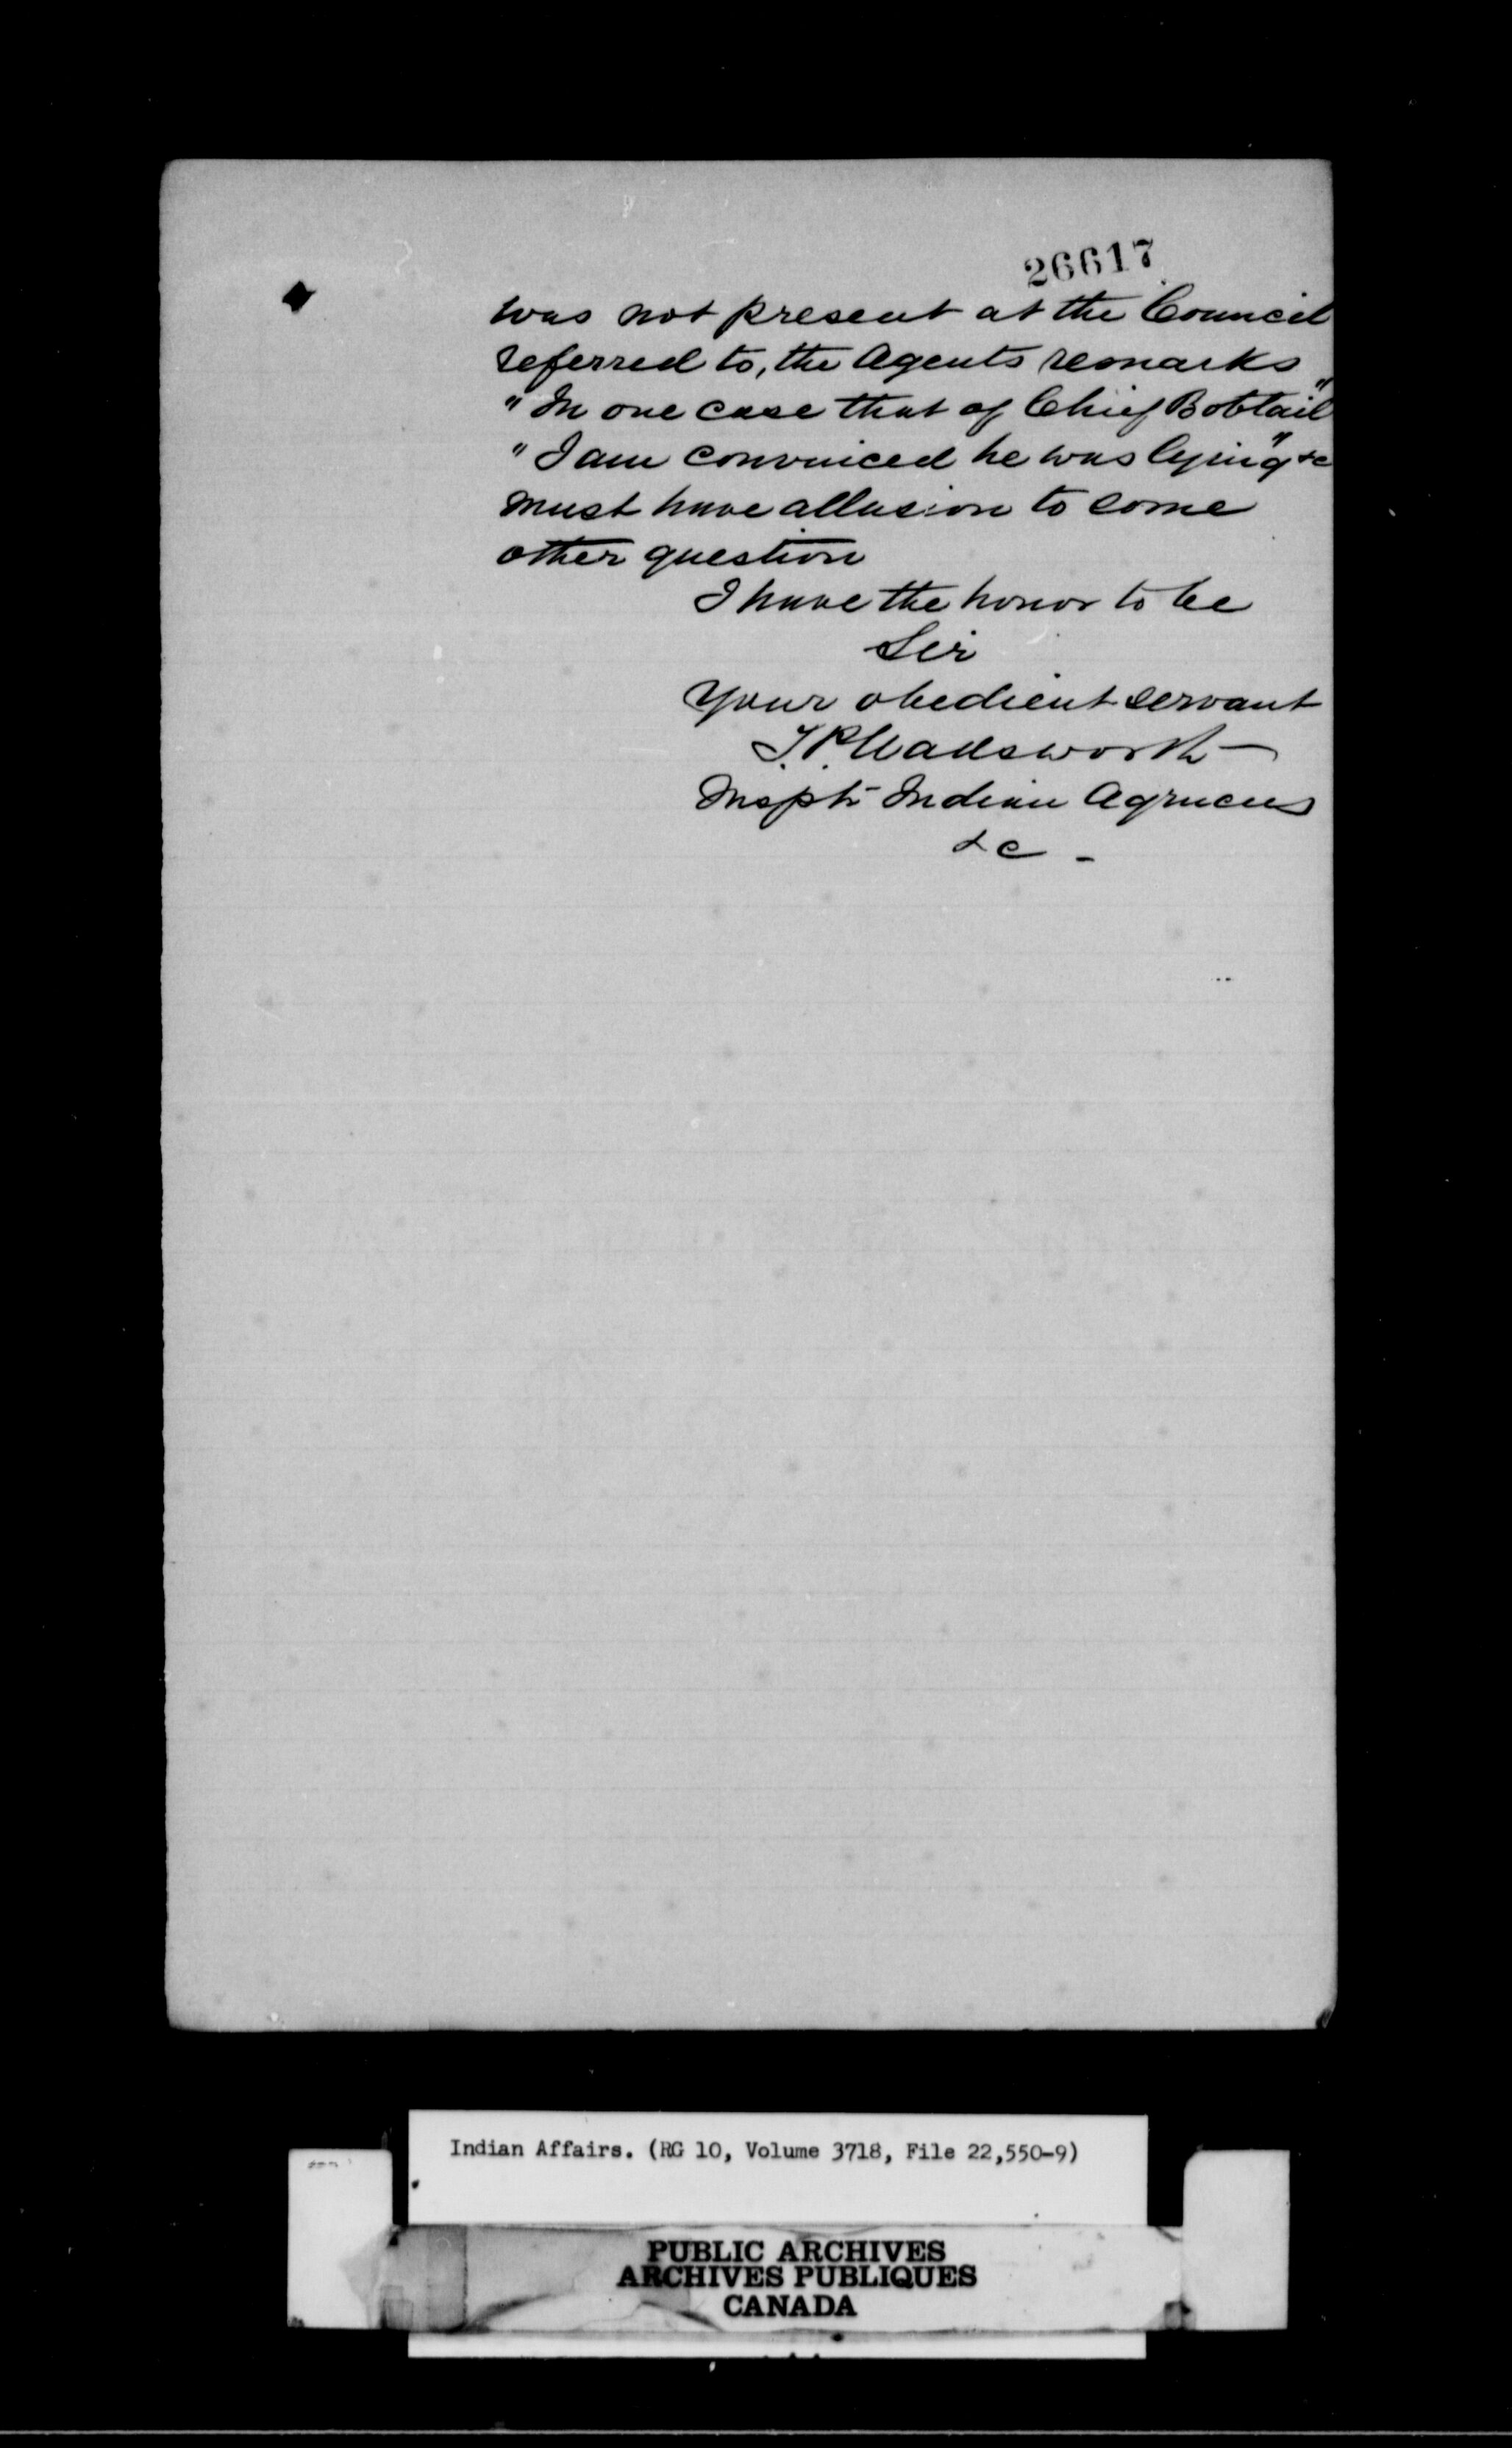 26617
was not present at the Council
referred to, the Agents remarks
"In one case that of Chief Bobtail"
"I am convinced he was lying" &c
must have allusion to some
other question
I have the honor to be
Sir
Your obedient servant
T.P. Wadsworth
Inspr Indian Agencies
&c -
Indian Affairs. (RG 10, Volume 3718, File 22,550-9)
PUBLIC ARCHIVES
ARCHIVES PUBLIQUES
CANADA